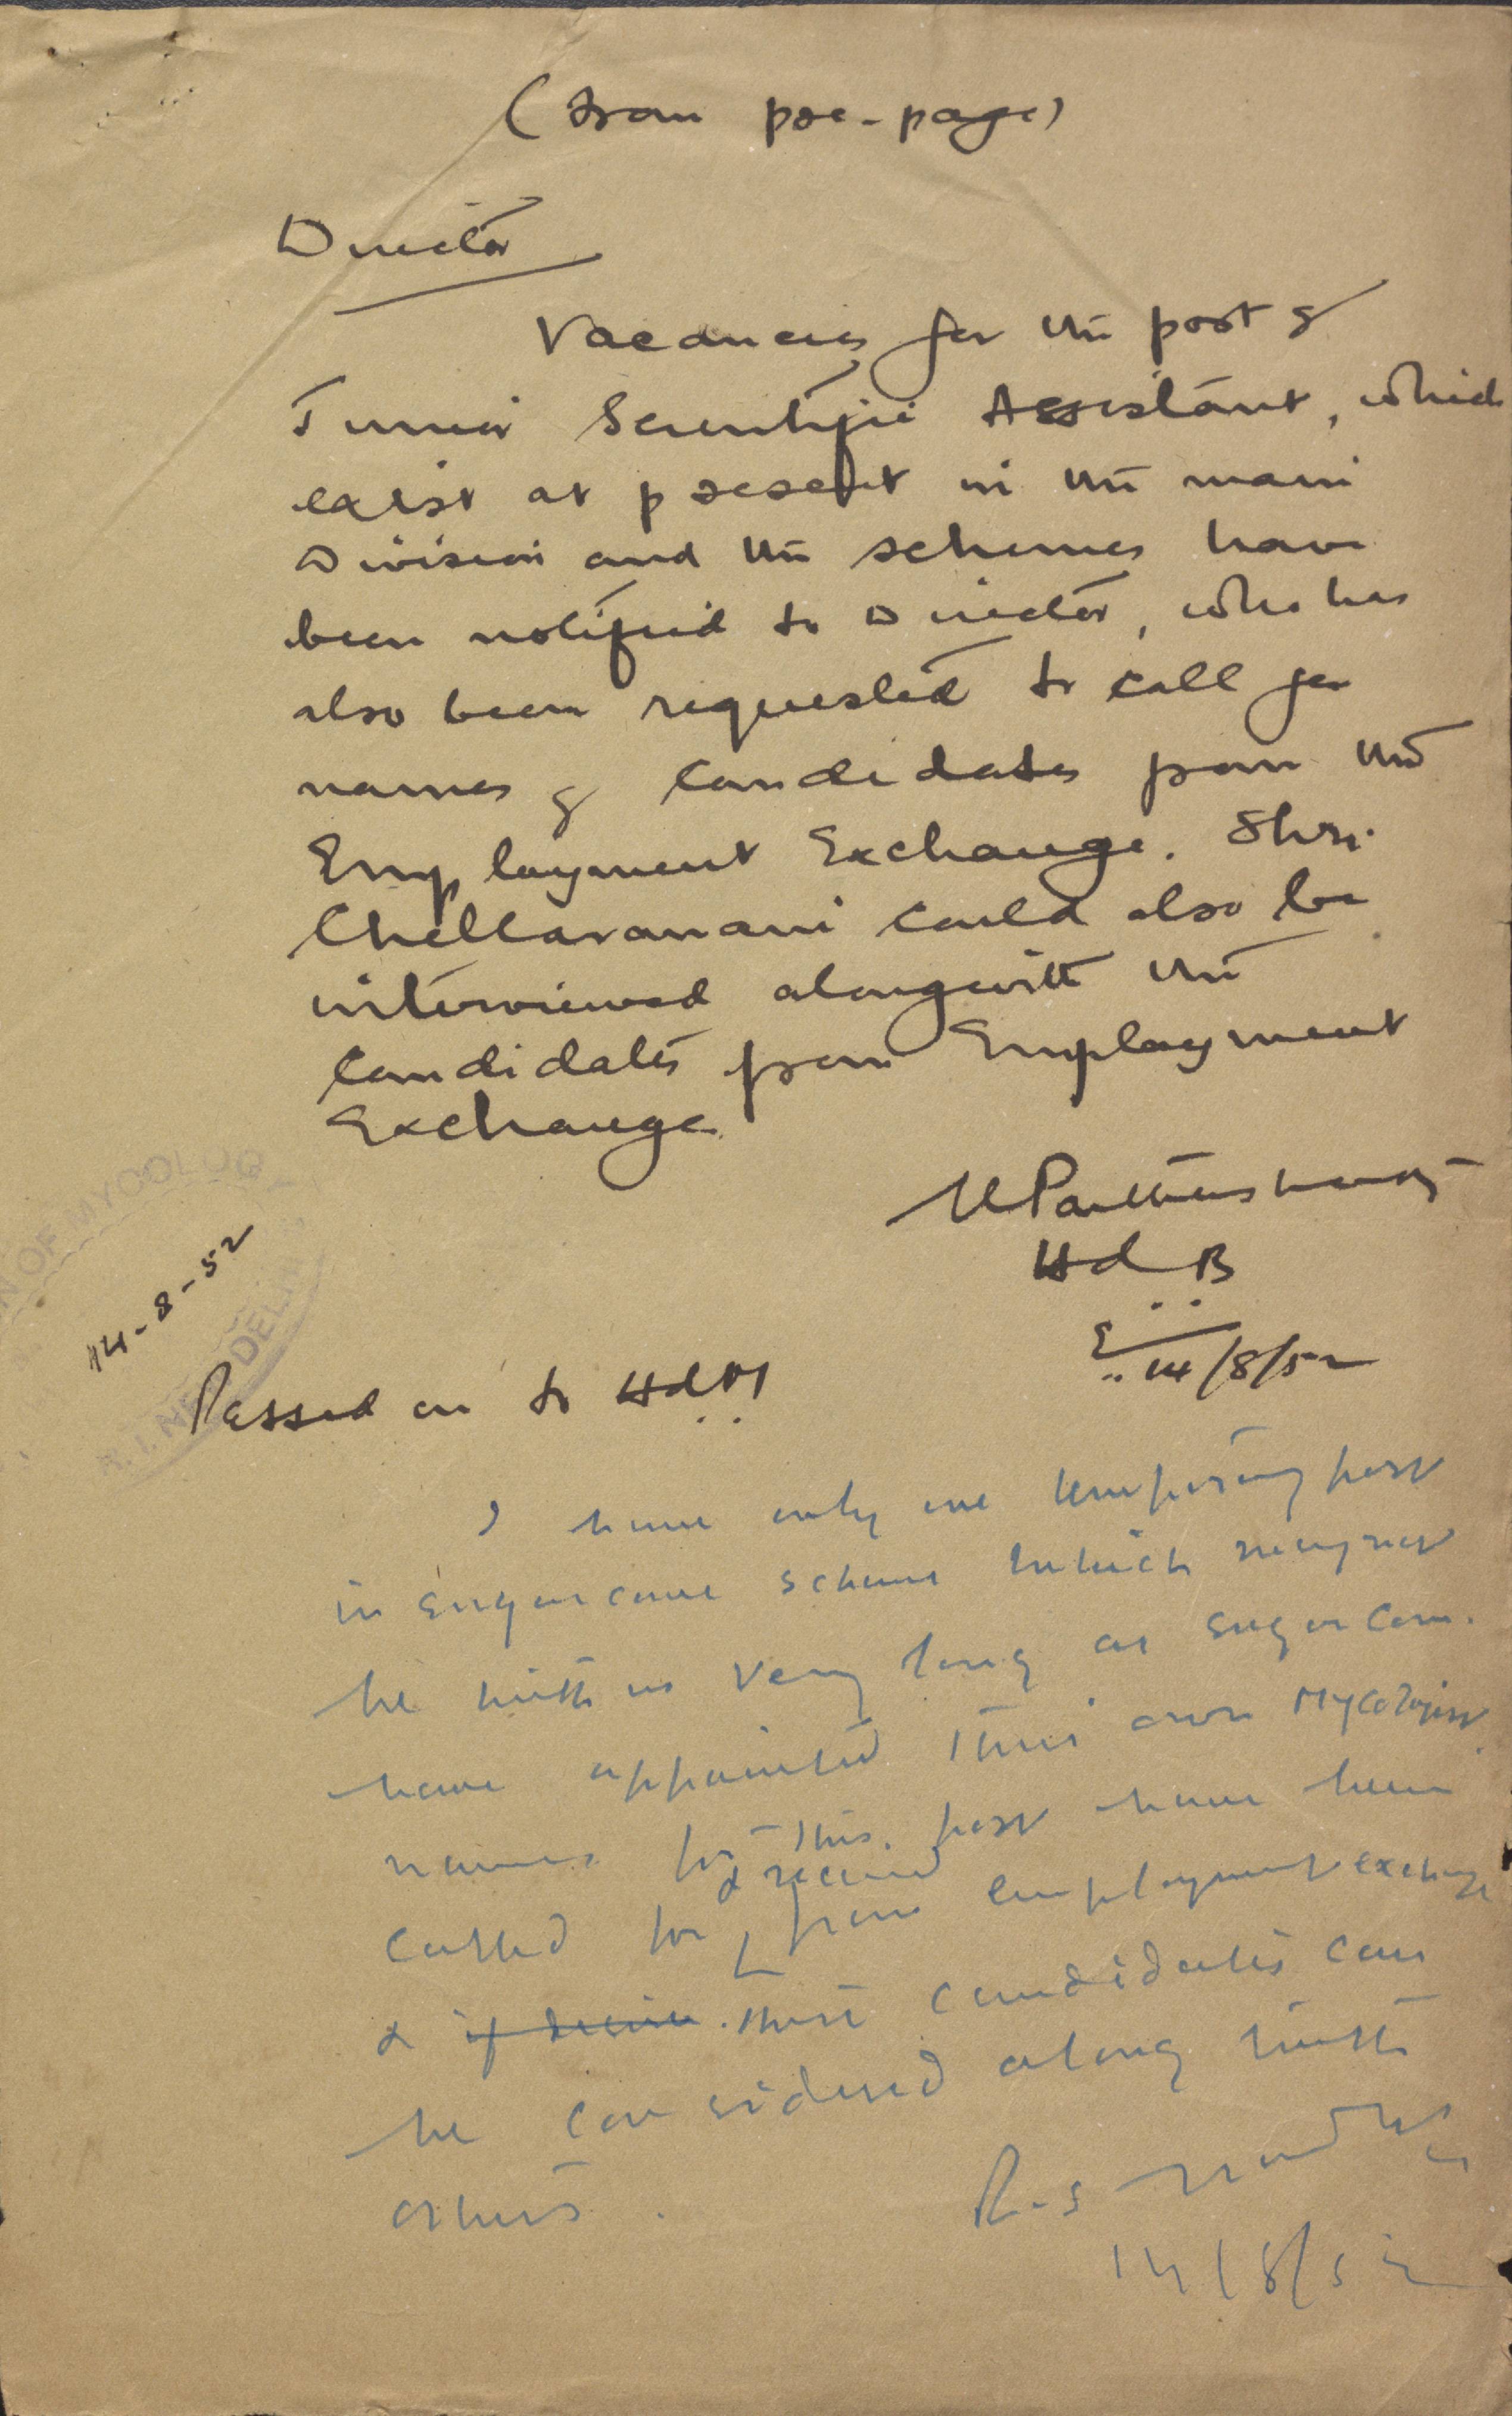 (from pre-page)
Director
Vacancies for the post of
Junior Scientific Assistant, which
exist at present in the main
Division and the schemes have
been notified to Director, who has
also been requested to call for
names of candidates from the
Employment Exchange. Shri.
Chellaramani could also be
interviewed alongwith the
candidates from Employment
Exchange
HdB
14/8/52
N OF MYCOLOGY
14-8-52
R.I. NEW DELHI
Passed on to HdM
I have only one temporary post
in sugarcane scheme which may not
be with us very long as sugarcane.
have appointed their own Mycologist
names for this post have been
& received
called for from employment exchange
& if receive. these candidates can
be considered along with
others.
14/8/52